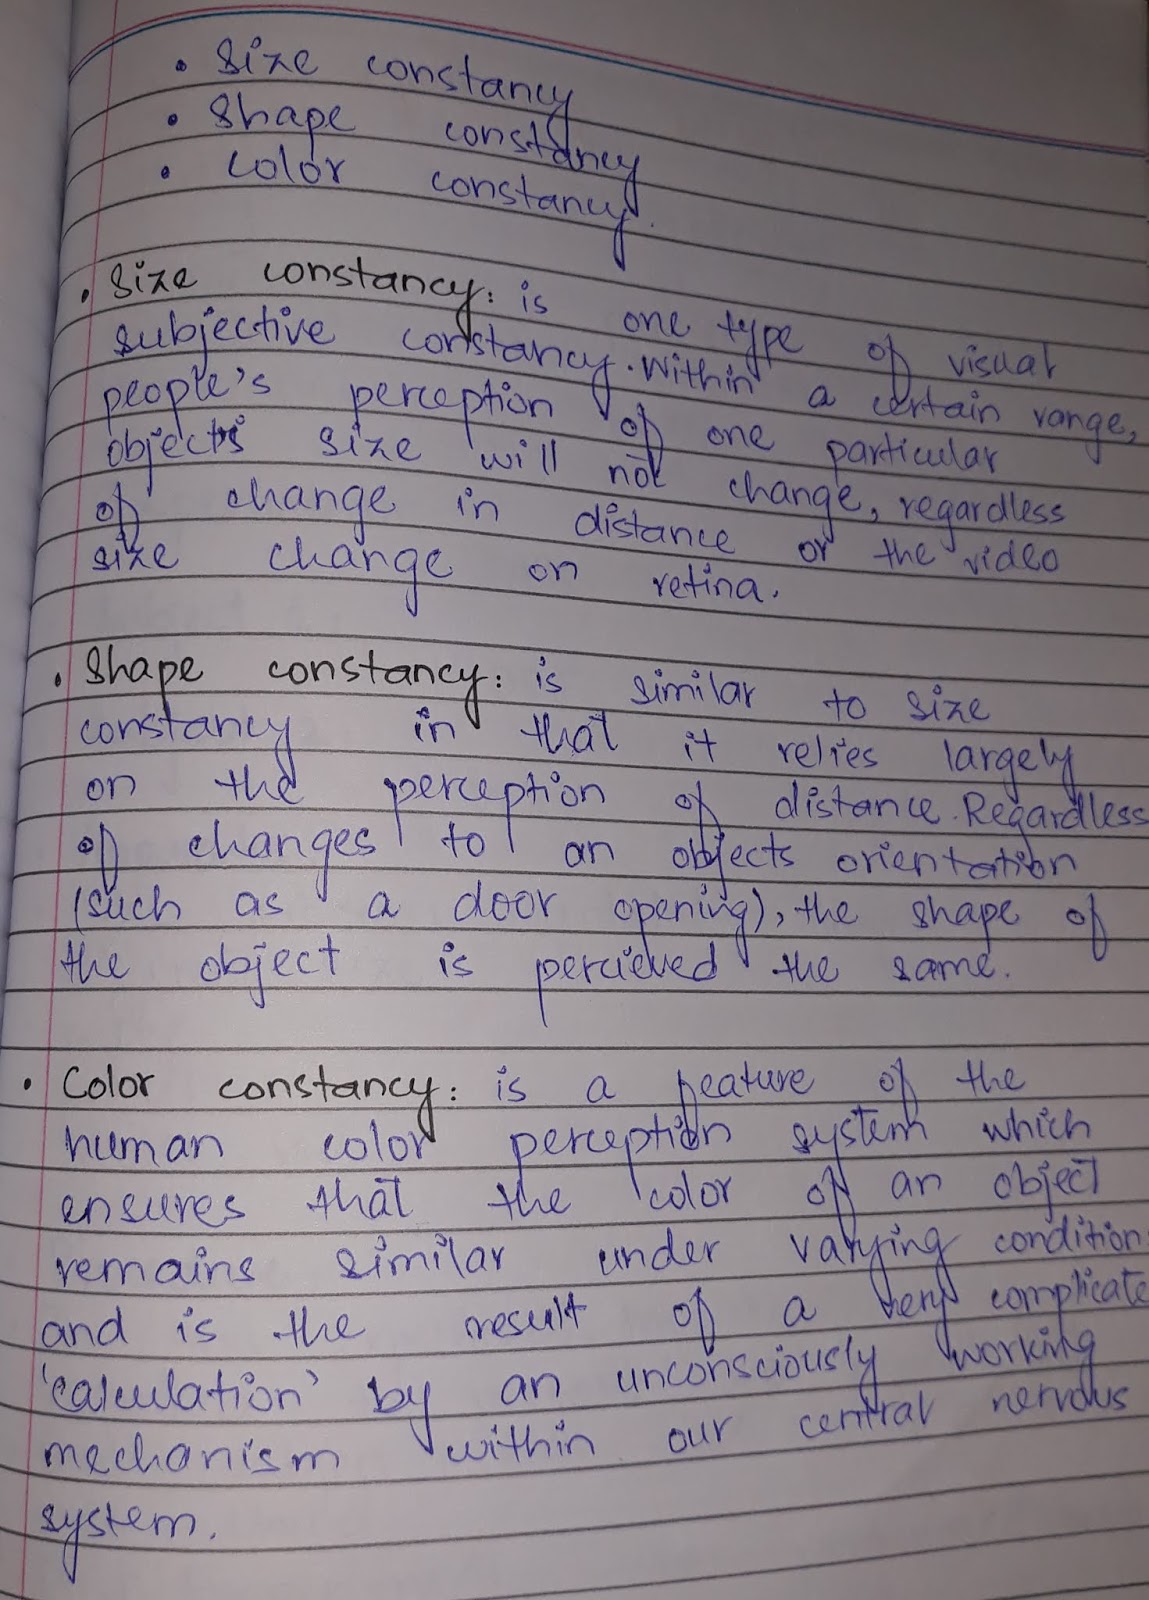 • Size constancy
• Shape constancy
• Color constancy.
• Size constancy: is one type of visual
subjective constancy. Within a certain range,
people's perception of one particular
objects size will not change, regardless
of change in distance or the video
size change on retina.
• Shape constancy: is similar to size
constancy in that it relies largely
on the perception of distance. Regardless
of changes to an objects orientation
(such as a door opening), the shape of
the object is percieved the same.
• Color constancy: is a feature of the
human color perception system which
ensures that the color of an object
remains similar under varying condition
and is the result of a very complicate
'calculation' by an unconsciously working
mechanism within our central nervous
system.